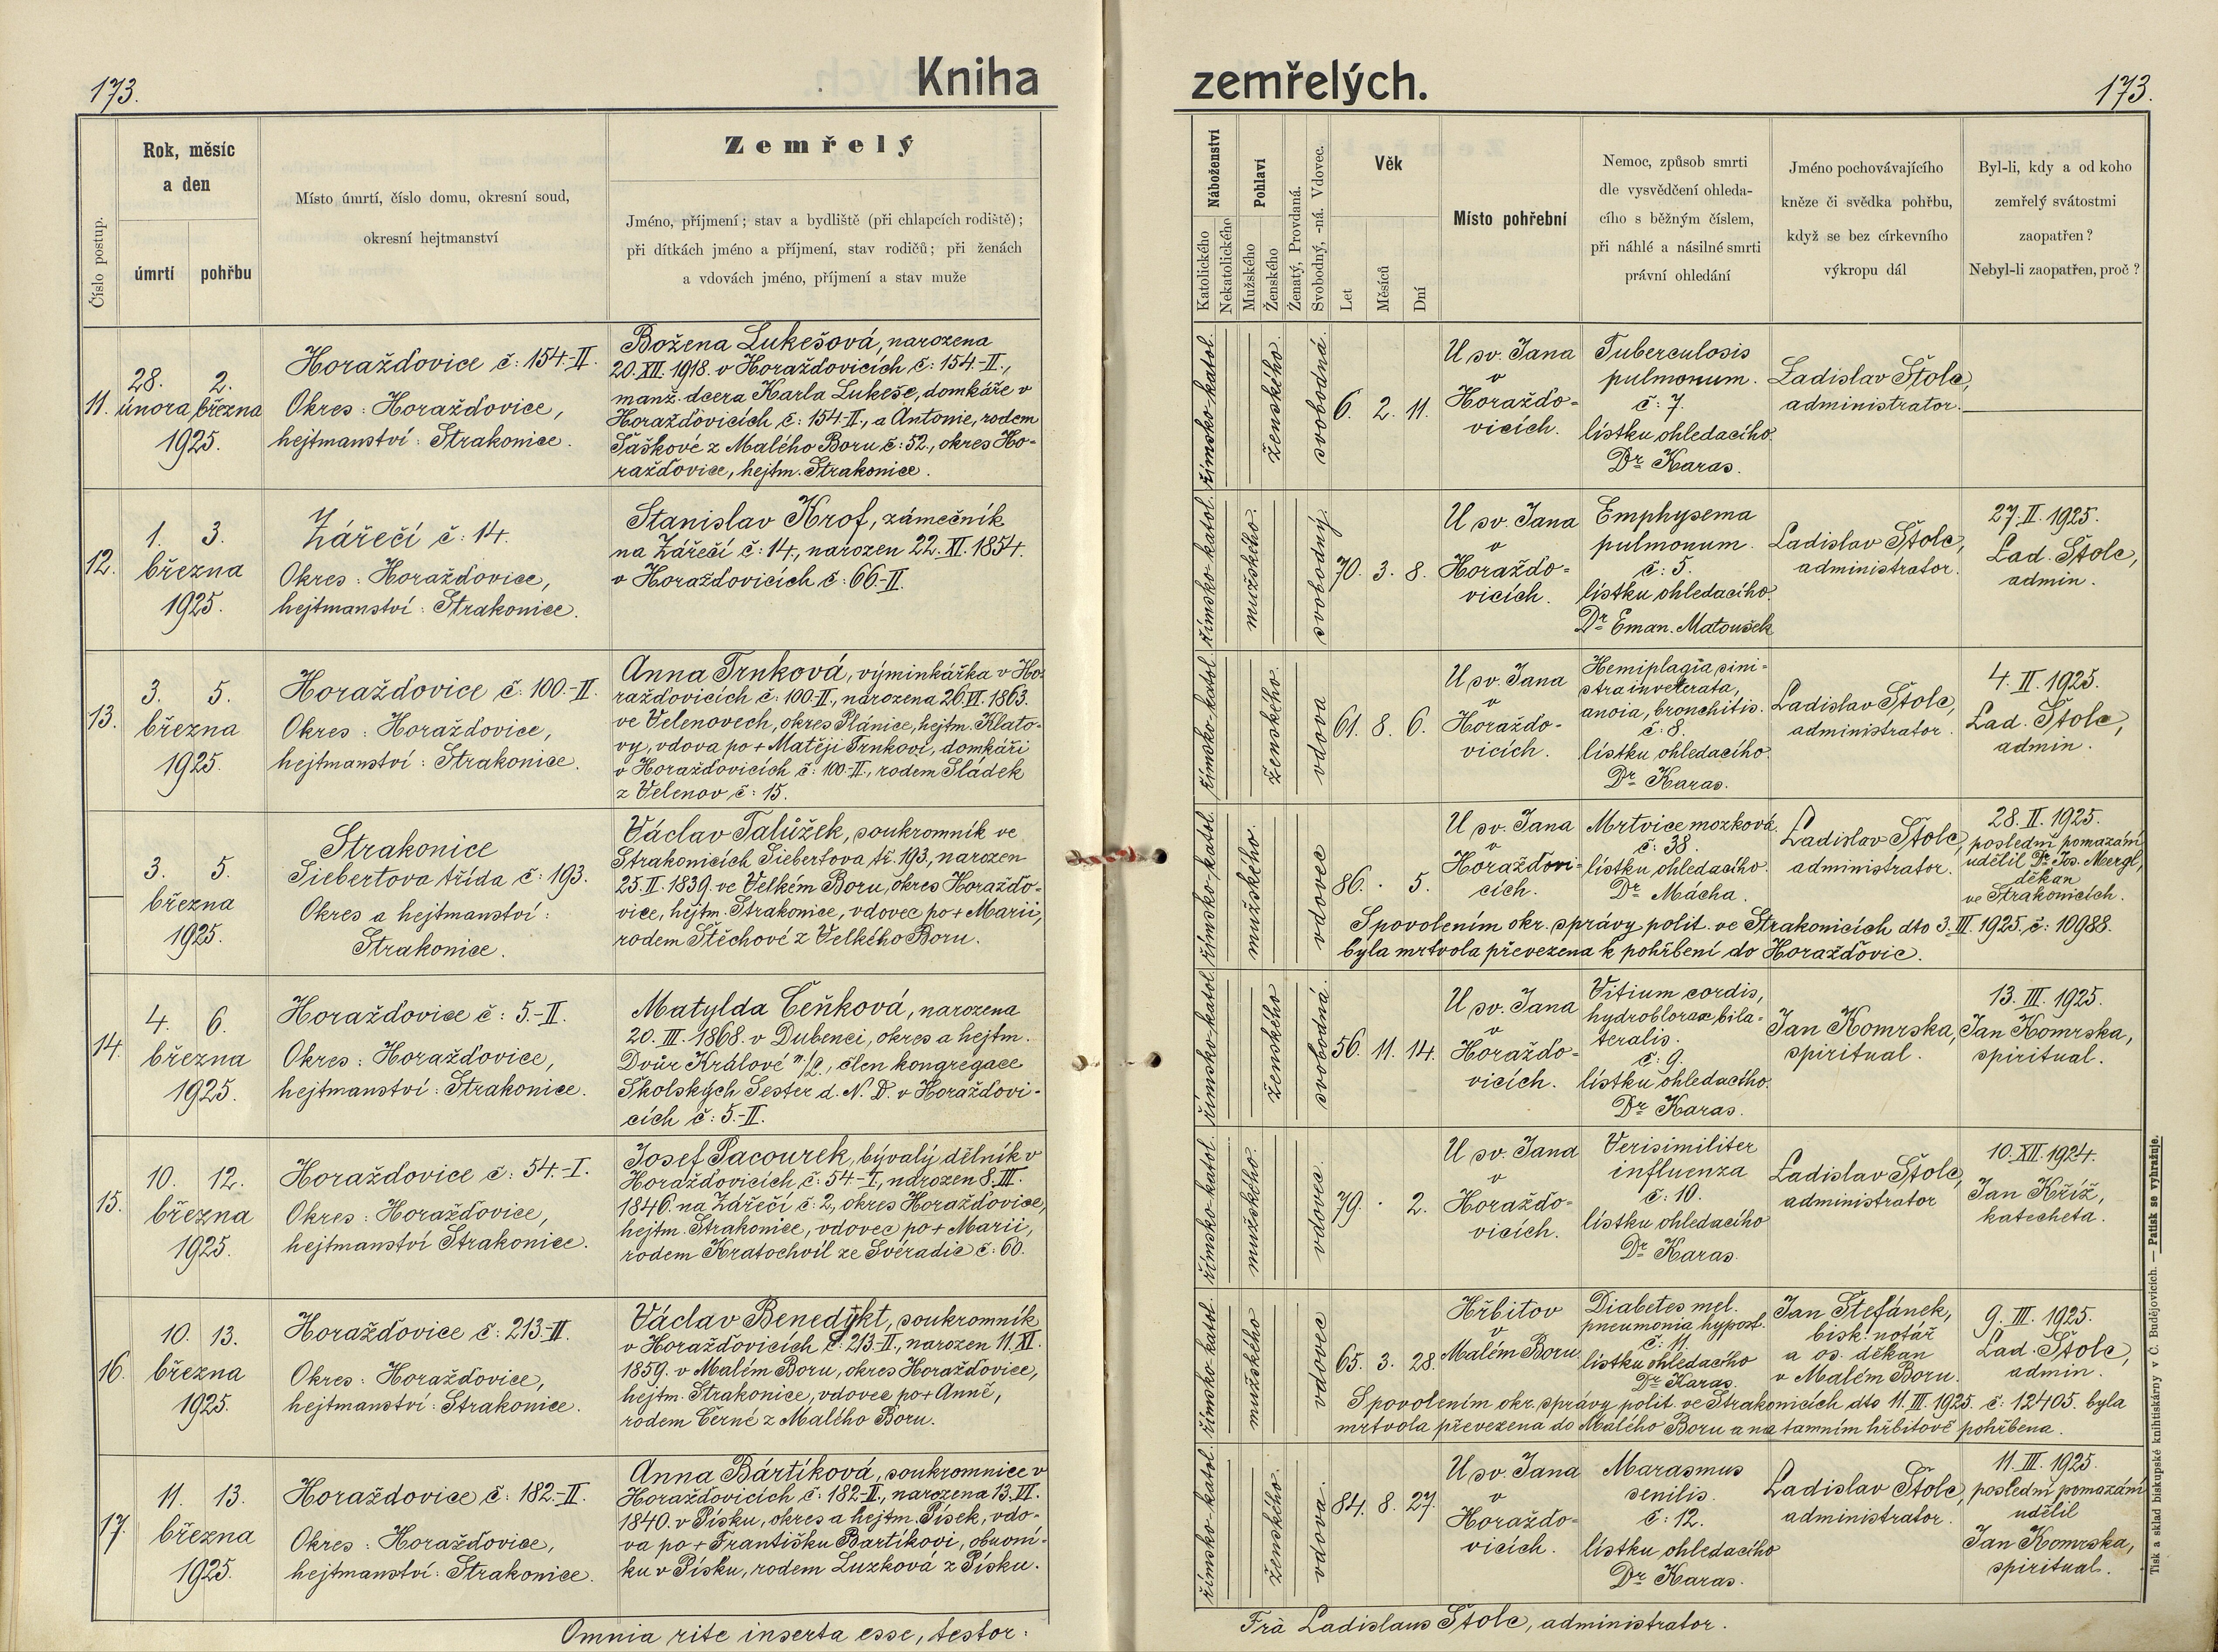 173.
Kniha
zemřelých.
173.
Číslo postup.
Rok, měsíc
a den
úmrtí
pohřbu
Místo úmrtí, číslo domu, okresní soud,
okresní hejtmanství
Zemřelý
Jméno, příjmení; stav a bydliště (při chlapcích rodiště);
při dítkách jméno a příjmení, stav rodičů; při ženách
a vdovách jméno, příjmení a stav muže
Náboženství
Katolického
Nekatolického
Pohlaví
Mužského
Ženského
Ženatý, Provdaná.
Svobodný, -ná. Vdovec.
Věk
Let
Měsíců
Dní
Místo pohřební
Nemoc, způsob smrti
dle vysvědčení ohleda-
cího s běžným číslem,
při náhlé a násilné smrti
právní ohledání
Jméno pochovávajícího
kněze či svědka pohřbu,
když se bez církevního
výkropu dál
Byl-li, kdy a od koho
zemřelý svátostmi
zaopatřen?
Nebyl-li zaopatřen, proč?
11.
28. 2.
února března
1925.
Horažďovice č: 154.-II.
Okres: Horažďovice,
hejtmanství: Strakonice.
Božena Lukešová, narozena
20.XII.1918. v Horažďovicích č: 154-II.,
manž. dcera Karla Lukeše, domkáře v
Horažďovicích č: 154-II., a Antonie, rodem
Šaškové z Malého Boru č: 52., okres Ho-
ražďovice, hejtm. Strakonice.
římsko-katol.
ženského.
svobodná.
6. 2. 11.
U sv. Jana
v
Horažďo-
vicích.
Tuberculosis
pulmonum.
č: 7.
lístku ohledacího.
Dr. Karas.
Ladislav Štolc,
administrator.
12.
1. 3.
března
1925.
Zářečí č: 14.
Okres: Horažďovice,
hejtmanství: Strakonice.
Stanislav Krof, zámečník
na Zářečí č: 14, narozen 22. XI. 1854.
v Horažďovicích č: 66-II.
římsko-katol.
mužského.
svobodný.
70. 3. 8.
U sv. Jana
v
Horažďo-
vicích.
Emphysema
pulmonum.
č: 5.
lístku ohledacího.
Dr. Eman. Matoušek
Ladislav Štolc,
administrátor.
27. II. 1925.
Lad. Štolc,
admin.
13.
3. 5.
března
1925.
Horažďovice č: 100.-II.
Okres: Horažďovice,
hejtmanství: Strakonice.
Anna Trnková, výminkářka v Ho-
ražďovicích č: 100-II., narozena 26.VI. 1863.
ve Velenovech, okres Plánice, hejtm. Klato-
vy, vdova po + Matěji Trnkovi, domkáři
v Horažďovicích č: 100-II., rodem Sládek
z Velenov č: 15.
římsko-katol.
ženského.
vdova
61. 8. 6.
U sv. Jana
v
Horažďo-
vicích.
Hemiplagia sini-
stra inveterata,
anoia, bronchitis.
č: 8.
lístku ohledacího.
Dr. Karas.
Ladislav Štolc,
administrátor.
4. II. 1925.
Lad. Štolc,
admin.
3. 5.
března
1925.
Strakonice
Siebertova třída č: 193.
Okres a hejtmanství:
Strakonice.
Václav Talůžek, soukromník ve
Strakonicích Siebertova tř. 193., narozen
25. II. 1839. ve Velkém Boru, okres Horažďo-
vice, hejtm. Strakonice, vdovec po + Marii,
rodem Štěchové z Velkého Boru.
římsko-katol.
mužského.
vdovec
86. . 5.
U sv. Jana
v
Horažďovi-
cích.
Mrtvice mozková.
č: 38.
lístku ohledacího.
Dr. Mácha.
Ladislav Štolc,
administrator.
28. II. 1925.
poslední pomazání
udělil Dr. Jos. Mergl,
děkan
ve Strakonicích.
S povolením okr. správy polit. ve Strakonicích dto 3. III. 1925. č: 10988.
byla mrtvola převezena k pohřbení do Horažďovic.
14.
4. 6.
března
1925.
Horažďovice č: 5.-II.
Okres: Horažďovice,
hejtmanství: Strakonice.
Matylda Ceňková, narozena
20. III. 1868. v Dubenci, okres a hejtm.
Dvůr Králové n./L., člen kongregace
Školských Sester d. N. D. v Horažďovi-
cích č: 5.-II.
římsko-katol.
ženského
svobodná.
56. 11. 14.
U sv. Jana
v
Horažďo-
vicích.
Vitium cordis,
hydroblorax bila-
teralis.
č: 9.
lístku ohledacího.
Dr. Karas.
Jan Komrska,
spiritual.
13. III. 1925.
Jan Komrska,
spiritual.
15.
10. 12.
března
1925.
Horažďovice č: 54.-I.
Okres: Horažďovice,
hejtmanství Strakonice.
Josef Pacourek, bývalý dělník v
Horažďovicích, č: 54-I., narozen 8. III.
1846. na Zářečí č: 2, okres Horažďovice,
hejtm. Strakonice, vdovec po + Marii,
rodem Kratochvíl ze Svéradic č: 60.
římsko-katol.
mužského.
vdovec.
79. . 2.
U sv. Jana
v
Horažďo-
vicích.
Verisimiliter
influenza
č: 10.
lístku ohledacího
Dr. Karas.
Ladislav Štolc,
administrátor
10. XII. 1924.
Jan Kříž,
katecheta.
16.
10. 13.
března
1925.
Horažďovice č: 213.-II.
Okres: Horažďovice,
hejtmanství: Strakonice.
Václav Benedykt, soukromník
v Horažďovicích č: 213-II., narozen 11. XI.
1859. v Malém Boru, okres Horažďovice,
hejtm. Strakonice, vdovec po + Anně,
rodem Černé z Malého Boru.
římsko-katol.
mužského
vdovec
65. 3. 28.
Hřbitov
v
Malém Boru
Diabetes mel.
pneumonia hypost.
č: 11.
lístku ohledacího
Dr. Karas.
Jan Štefánek,
bisk. notář
a os. děkan
v Malém Boru.
9. III. 1925.
Lad. Štolc,
admin.
S povolením okr. správy polit. ve Strakonicích dto 11. III. 1925. č: 12405. byla
mrtvola převezena do Malého Boru a na tamním hřbitově pohřbena.
17.
11. 13.
března
1925.
Horažďovice č: 182.-II.
Okres: Horažďovice,
hejtmanství: Strakonice.
Anna Bártíková, soukromnice v
Horažďovicích č: 182-II., narozena 13. VI.
1840. v Písku, okres a hejtm. Písek, vdo-
va po + Františku Bartíkovi, obuvní-
ku v Písku, rodem Luzková z Písku.
římsko-katol.
ženského.
vdova.
84. 8. 27.
U sv. Jana
v
Horažďo-
vicích.
Marasmus
senilis.
č: 12.
lístku ohledacího
Dr. Karas.
Ladislav Štolc,
administrátor.
11. III. 1925.
poslední pomazání
udělil
Jan Komrska,
spiritual.
Omnia rite inserta esse, testor:
Frà Ladislaus Štolc, administrator.
Tisk a sklad biskupské knihtiskárny v Č. Budějovicích. — Patisk se vyhražuje.